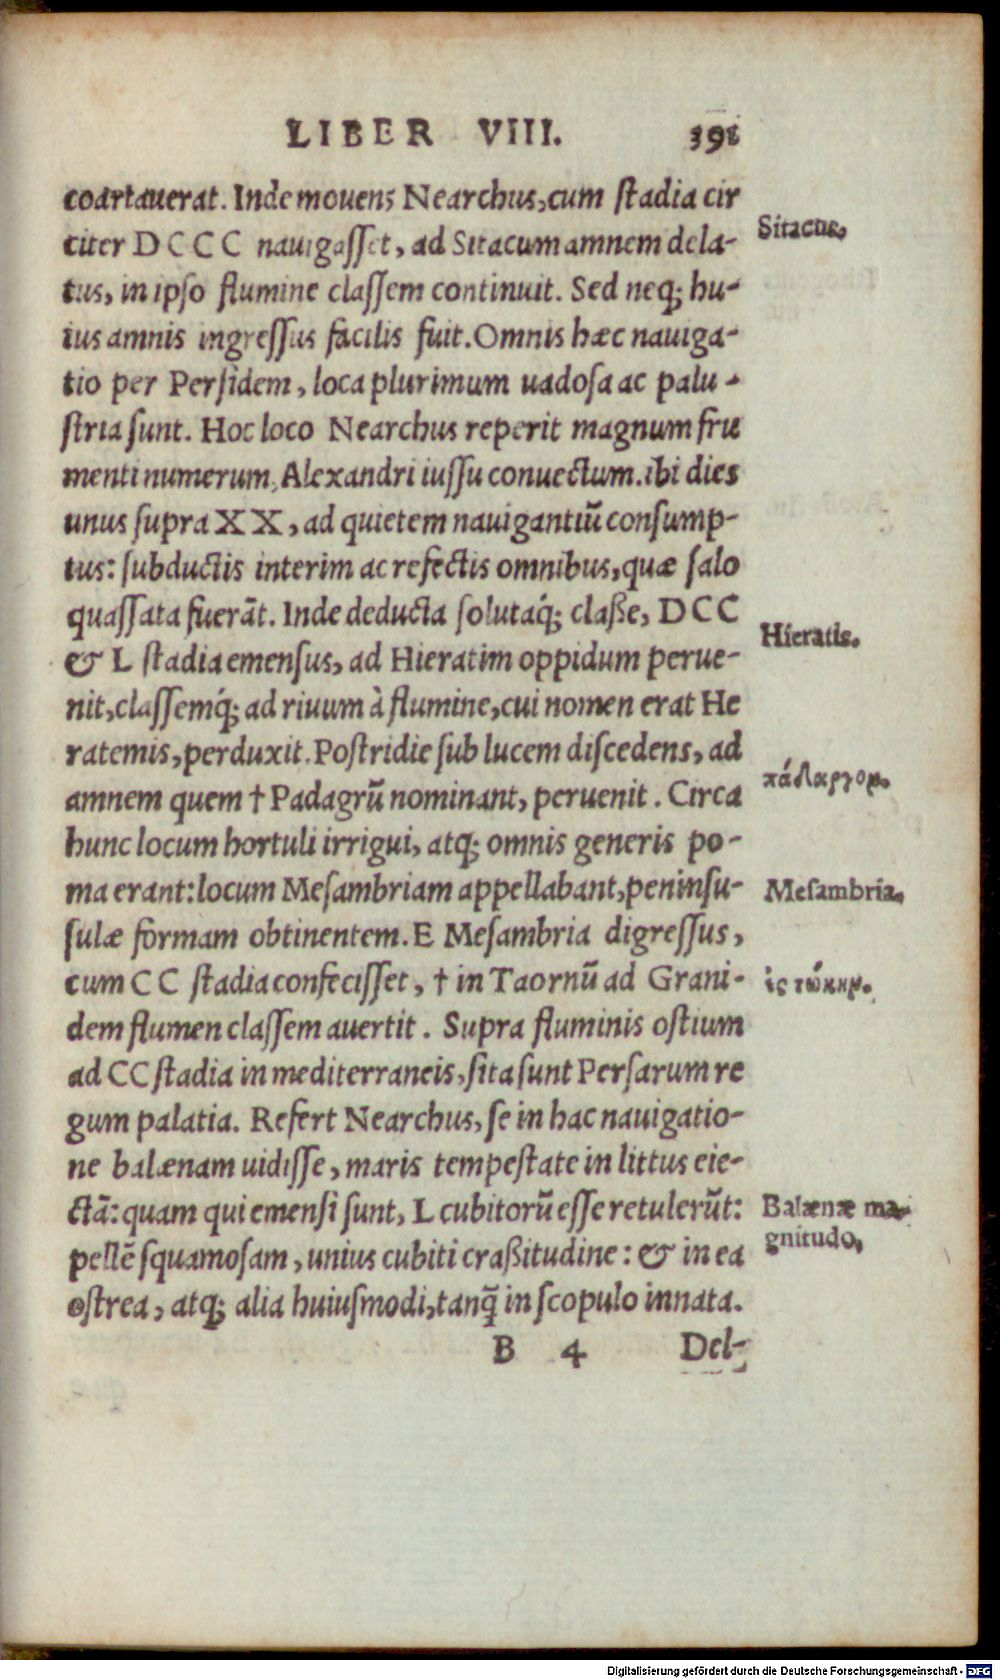 LIBER VIII. 391
coartauerat. Inde mouens Nearchus, cum ſtadia cir
citer DCCC nauigaſſet, ad Sitacum amnem dela-
tus, in ipſo flumine claſſem continuit. Sed neq; hu-
ius amnis ingreſſus facilis fuit. Omnis hæc nauiga-
tio per Perſidem, loca plurimum uadoſa ac palu-
ſtria ſunt. Hoc loco Nearchus reperit magnum fru
menti numerum, Alexandri iuſſu conuectum. ibi dies
unus ſupra XX, ad quietem nauigantiũ conſump-
tus: ſubductis interim ac refectis omnibus, quæ ſalo
quaſſata fuerãt. Inde deducta ſolutaq́; claße, DCC
& L ſtadia emenſus, ad Hieratim oppidum perue-
nit, claſſemq́; ad riuum à flumine, cui nomen erat He
ratemis, perduxit. Poſtridie ſub lucem diſcedens, ad
amnem quem † Padagrũ nominant, peruenit. Circa
hunc locum hortuli irrigui, atq; omnis generis po-
ma erant: locum Meſambriam appellabant, peninſu-
ſulæ formam obtinentem. E Meſambria digreſſus,
cum CC ſtadia confeciſſet, † in Taornũ ad Grani-
dem flumen claſſem auertit. Supra fluminis oſtium
ad CC ſtadia in mediterraneis, ſita ſunt Perſarum re
gum palatia. Refert Nearchus, ſe in hac nauigatio-
ne balænam uidiſſe, maris tempeſtate in littus eie-
ctã: quam qui emenſi ſunt, L cubitorũ eſſe retulerũt:
pellẽ ſquamoſam, unius cubiti craßitudine: & in ea
oſtrea, atq; alia huiuſmodi, tanq̃ in ſcopulo innata.
B 4 Del-
Sitacus.
Hieratis.
πάδαργον.
Meſambria.
ἐς τώκην.
Balænæ ma-
gnitudo.
Digitalisierung gefördert durch die Deutsche Forschungsgemeinschaft - DFG